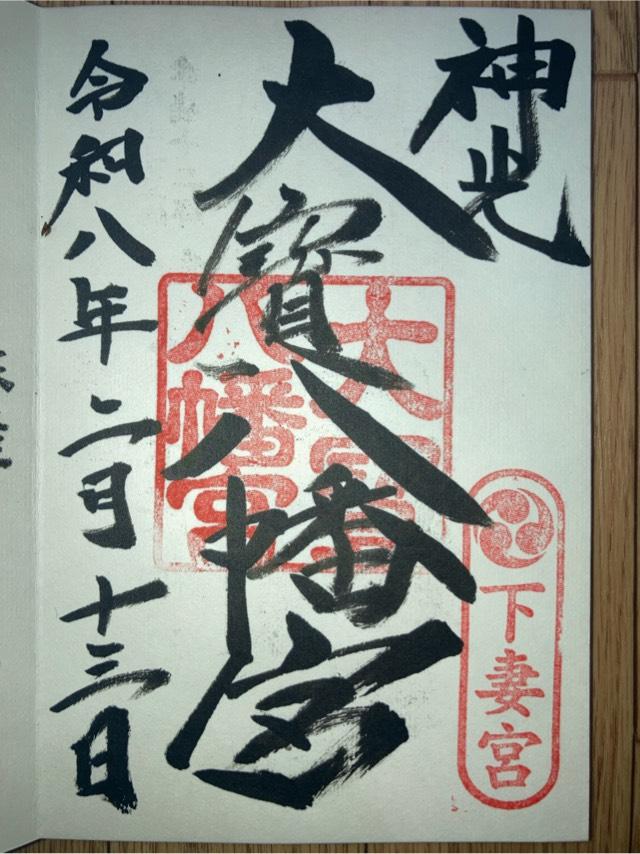 神光
大寳八幡宮
大宝八幡宮
下妻宮
令和八年二月十三日